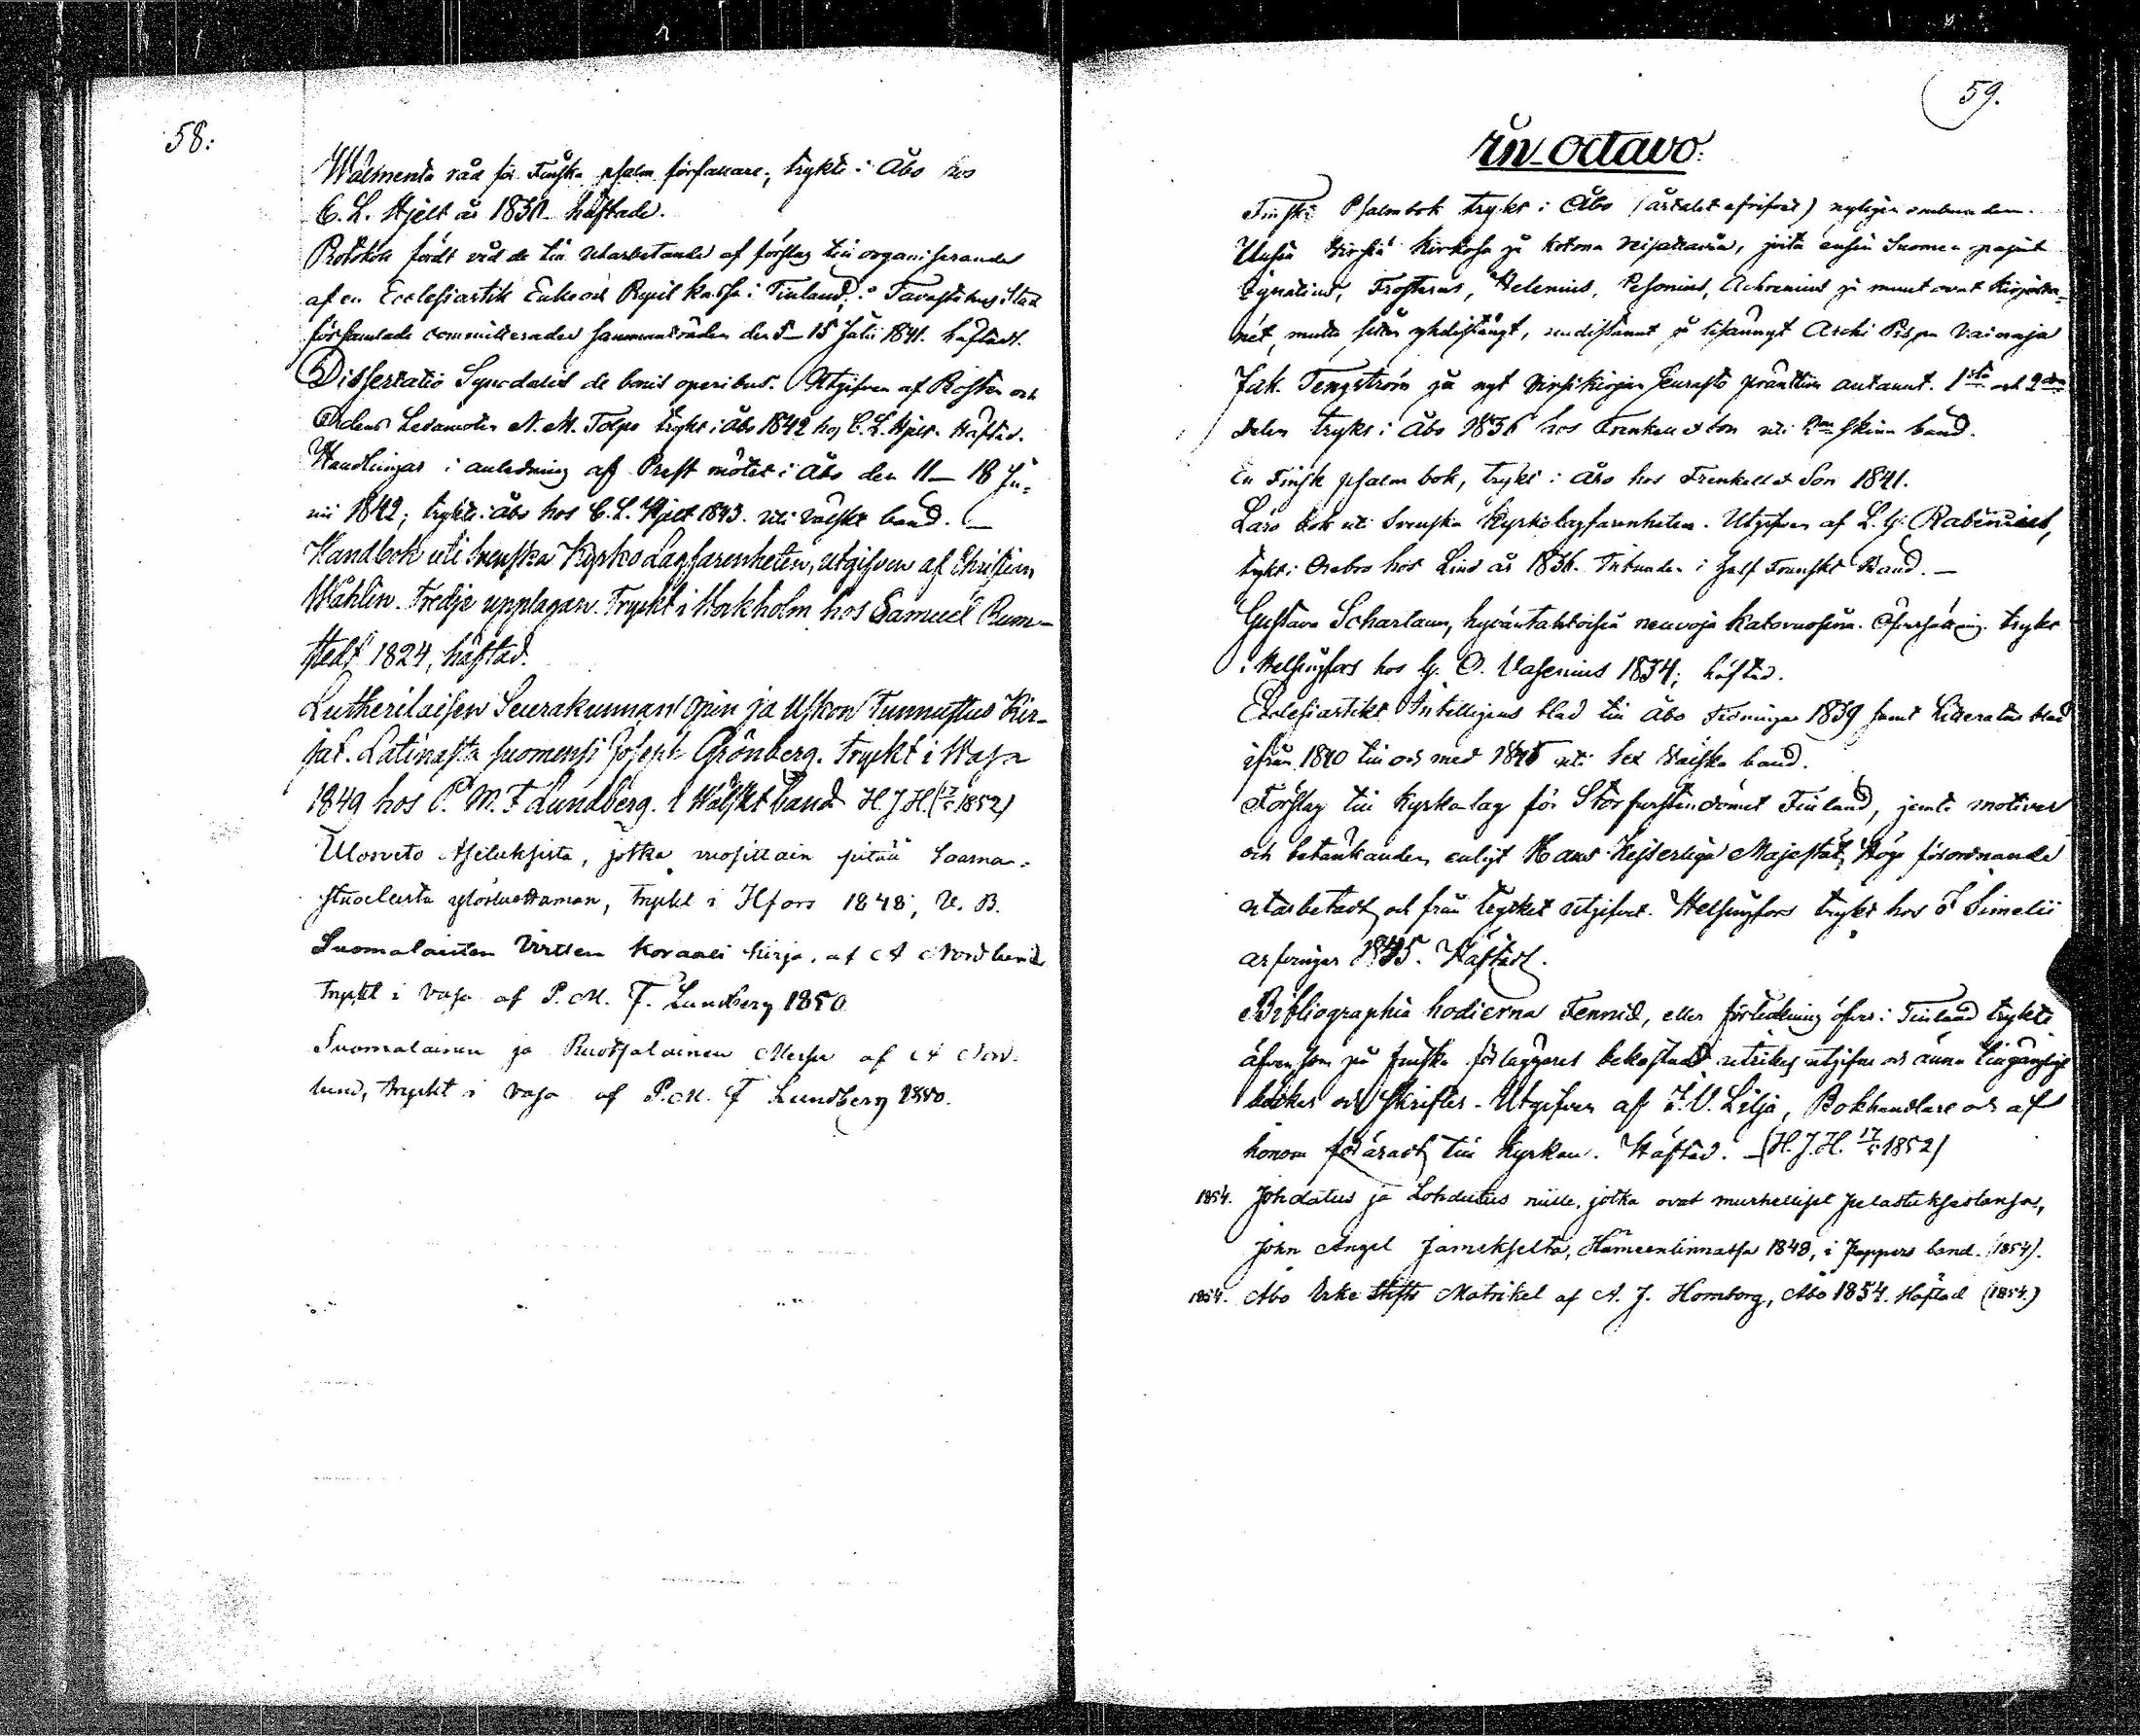 58:
Wälmenta råd för Finska psalm författare, trykte i Åbo hos
C. L. Hjelt år 1830. häftade.
Protokoll fördt vid de till utarbetande af förslag till organiserande
af en Ecclesiastik Enke och Pupill kassa i Finland, i Tavastehus Stad
församlade committerades sammanträden den 5–15 Julii 1841. häftadt.
Dissertatio Synodalis de bonis operibus. Utgifven af Prosten och
Ordens Ledamoten A. M. Tolpo trykt i Åbo 1842 hos C. L. Hjelt. Häftad.
Handlingar i anledning af Prest mötet i Åbo den 11–18 Ju=
nii 1842; trykte i Åbo hos C. L. Hjelt 1843. uti välskt band. —
Handbok uti Svenska Kyrko Lagfarenheten, utgifven af Christian
Wåhlin. Tredje upplagan. Tryckt i Stockholm hos Samuel Rum-
stedt 1824, häftad.
Lutherilaisen Seurakunnan Opin ja Uskon Tunnustus Kir-
jat. Latinasta suomensi Joseph Grönberg. Tryckt i Wasa
1849 hos P. M. F Lundberg. i Wälskt band H. J. H. (17/5 1852)
Ulosveto Asetuksista, jotka vuosittain pitää Saarna-
stuolista ylösluettaman, tryckt i Hfors 1848, V. B.
Suomalaisten Virtten Koraali kirja, af A Nordlund
Tryckt i Vasa af P. M. F. Lundberg 1850
Suomalainen ja Ruotsalainen Messu af A Nord-
lund, tryckt i Vasa af P. M. F Lundberg 1850.
59.
In octavo.
Finsk Psalmbok trykt i Åbo (årtalet afrifvet) nyligen ombunden.
Uusia Virsiä Kirkosa ja kotona veisattavia, joita ensin Suomen papit
Ignatius, Frosterus, Helenius, Pesonius, Achrenius ja muut ovat kirjoitta=
net, mutta sitten yhdistänyt, uudistanut ja lisännyt Archi Pispa vainaja
Jak. Tengström ja nyt Virsikirjan Seurasta präntiin antanut. 1sta och 2dra
Delen trykt i Åbo 1836 hos Frenckell & Son uti skinn band.
En Finsk psalm bok, trykt i Åbo hos Frenkell & Son 1841.
Läro bok uti Svenska Kyrkolagfarenheten. Utgifven af L. G. Rabenius,
trykt i Örebro hos Lind år 1836. Inbunden i half Franskt Band. —
Gustava Schartaun, hyväntahtoisia neuvoja Katovuosina. Öfversättning. trykt
i Helsingfors hos G. O. Vasenius 1834; häftad.
Ecclesiastikt Intelligens blad till Åbo Tidningar 1839 samt Litteratur blad
ifrån 1840 till och med 1845 uti sex välska band.
Förslag till Kyrkolag för Storfurstendömet Finland, jemte motiver
och betänkanden, enligt Hans Kejserliga Majestäts Höga förordnande
utarbetadt och från trycket utgifvet. Helsingfors trykt hos J Simelii
arfvingar 1845. Häftadt.
Bibliographia hodierna Fennia, eller förteckning öfver i Finland trykte
äfvensom på finska förläggares bekostnad utrikes utgifne och ännu tillgänglige
böcker och skrifter. Utgifven af J. W. Lilja, Bokhandlare och af
honom förärad till Kyrkan. Häftad. — (H. J. H. 17/5 1852)
1854. Johdatus ja Lohdutus niille, jotka ovat murhelliset pelastuksestansa,
John Angel Jamekselta, Hämeenlinnassa 1848, i Pappers band. (1854).
1854. Åbo Erke Stifts Matrikel af A. J. Hornborg, Åbo 1854. Häftad (1854.)